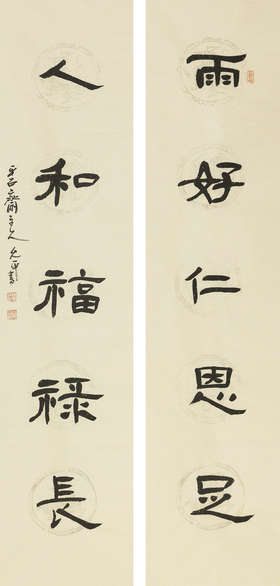 雨好仁恩足
人和福禄長